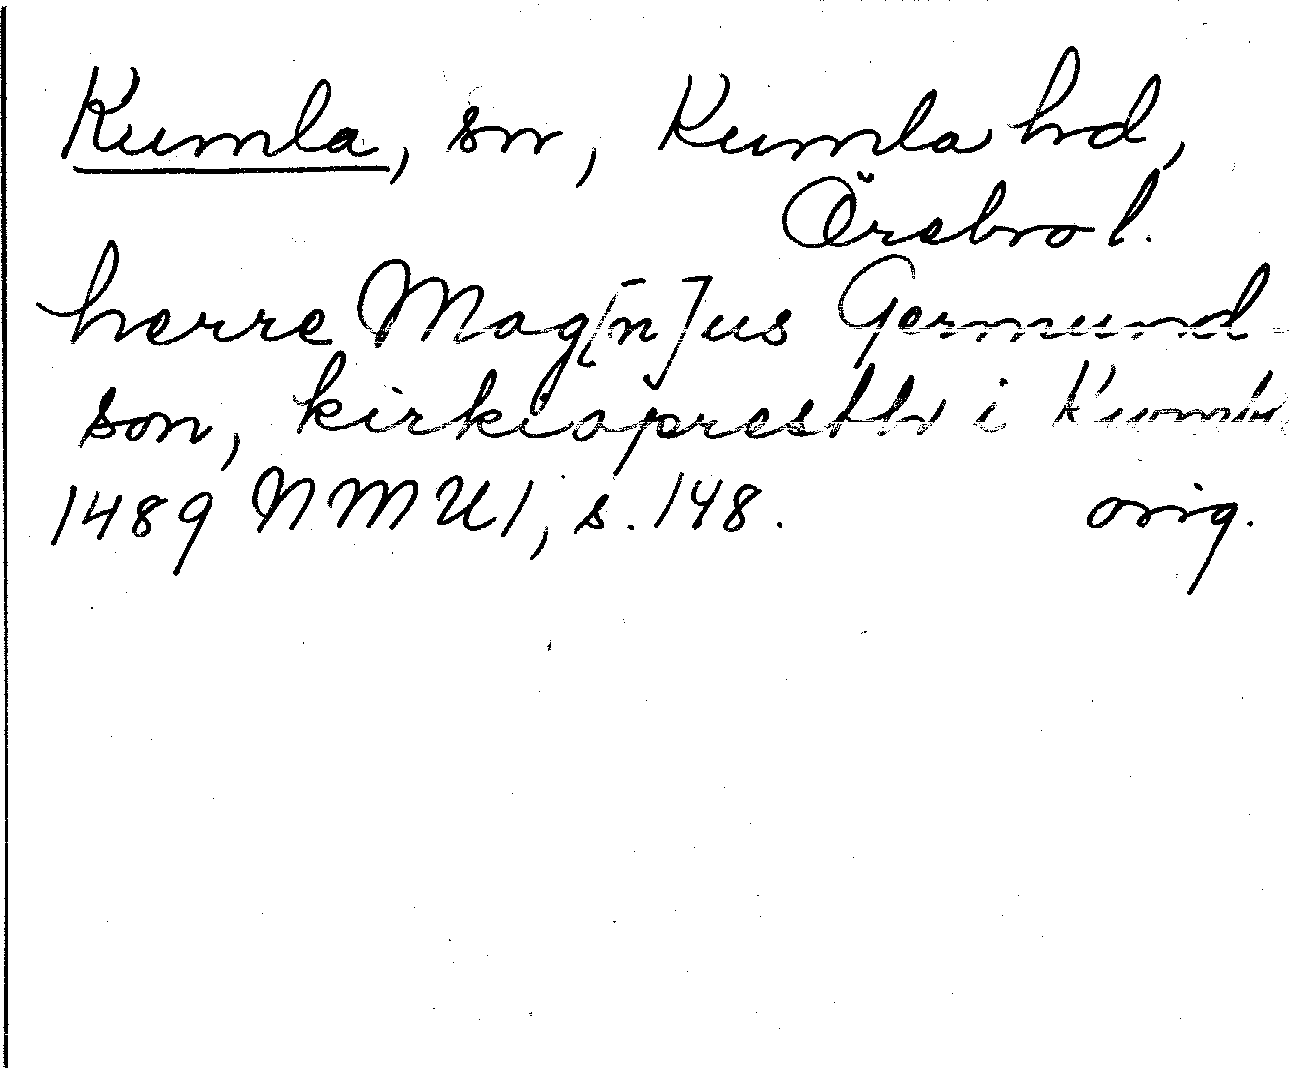 Kumla, sn, Kumla hd,
Örebro l.
herre Mag[n]us Germund-
son, kirkiapresth i Kumbla
1489 NMU 1, s. 148. orig.